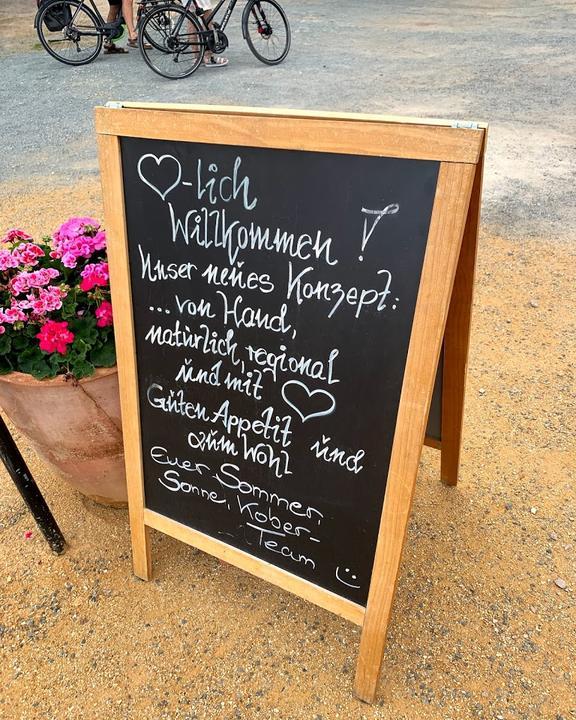 ♡-lich
Willkommen !
Unser neues Konzept:
... von Hand,
natürlich, regional
und mit ♡
Guten Appetit und
zum Wohl
Euer Sommer,
Sonne, Kober-
Team :)